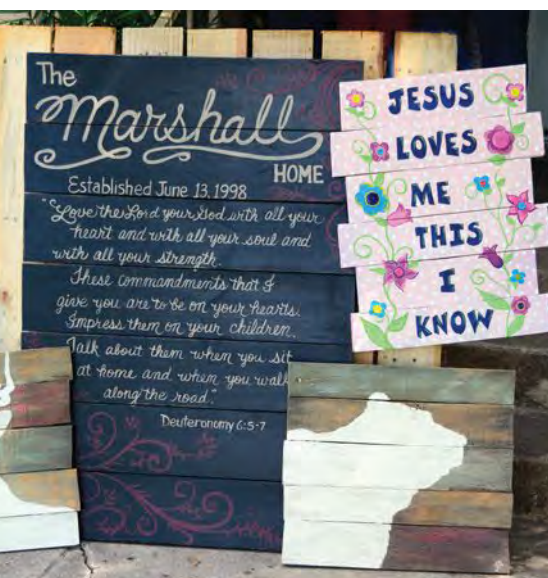 The
Marshall
HOME
Established June 13, 1998
"Love the Lord your God with all your
heart and with all your soul and
with all your strength.
These commandments that I
give you are to be on your hearts.
Impress them on your children.
Talk about them when you sit
at home and when you walk
along the road."
Deuteronomy 6:5-7
JESUS
LOVES
ME
THIS
I
KNOW